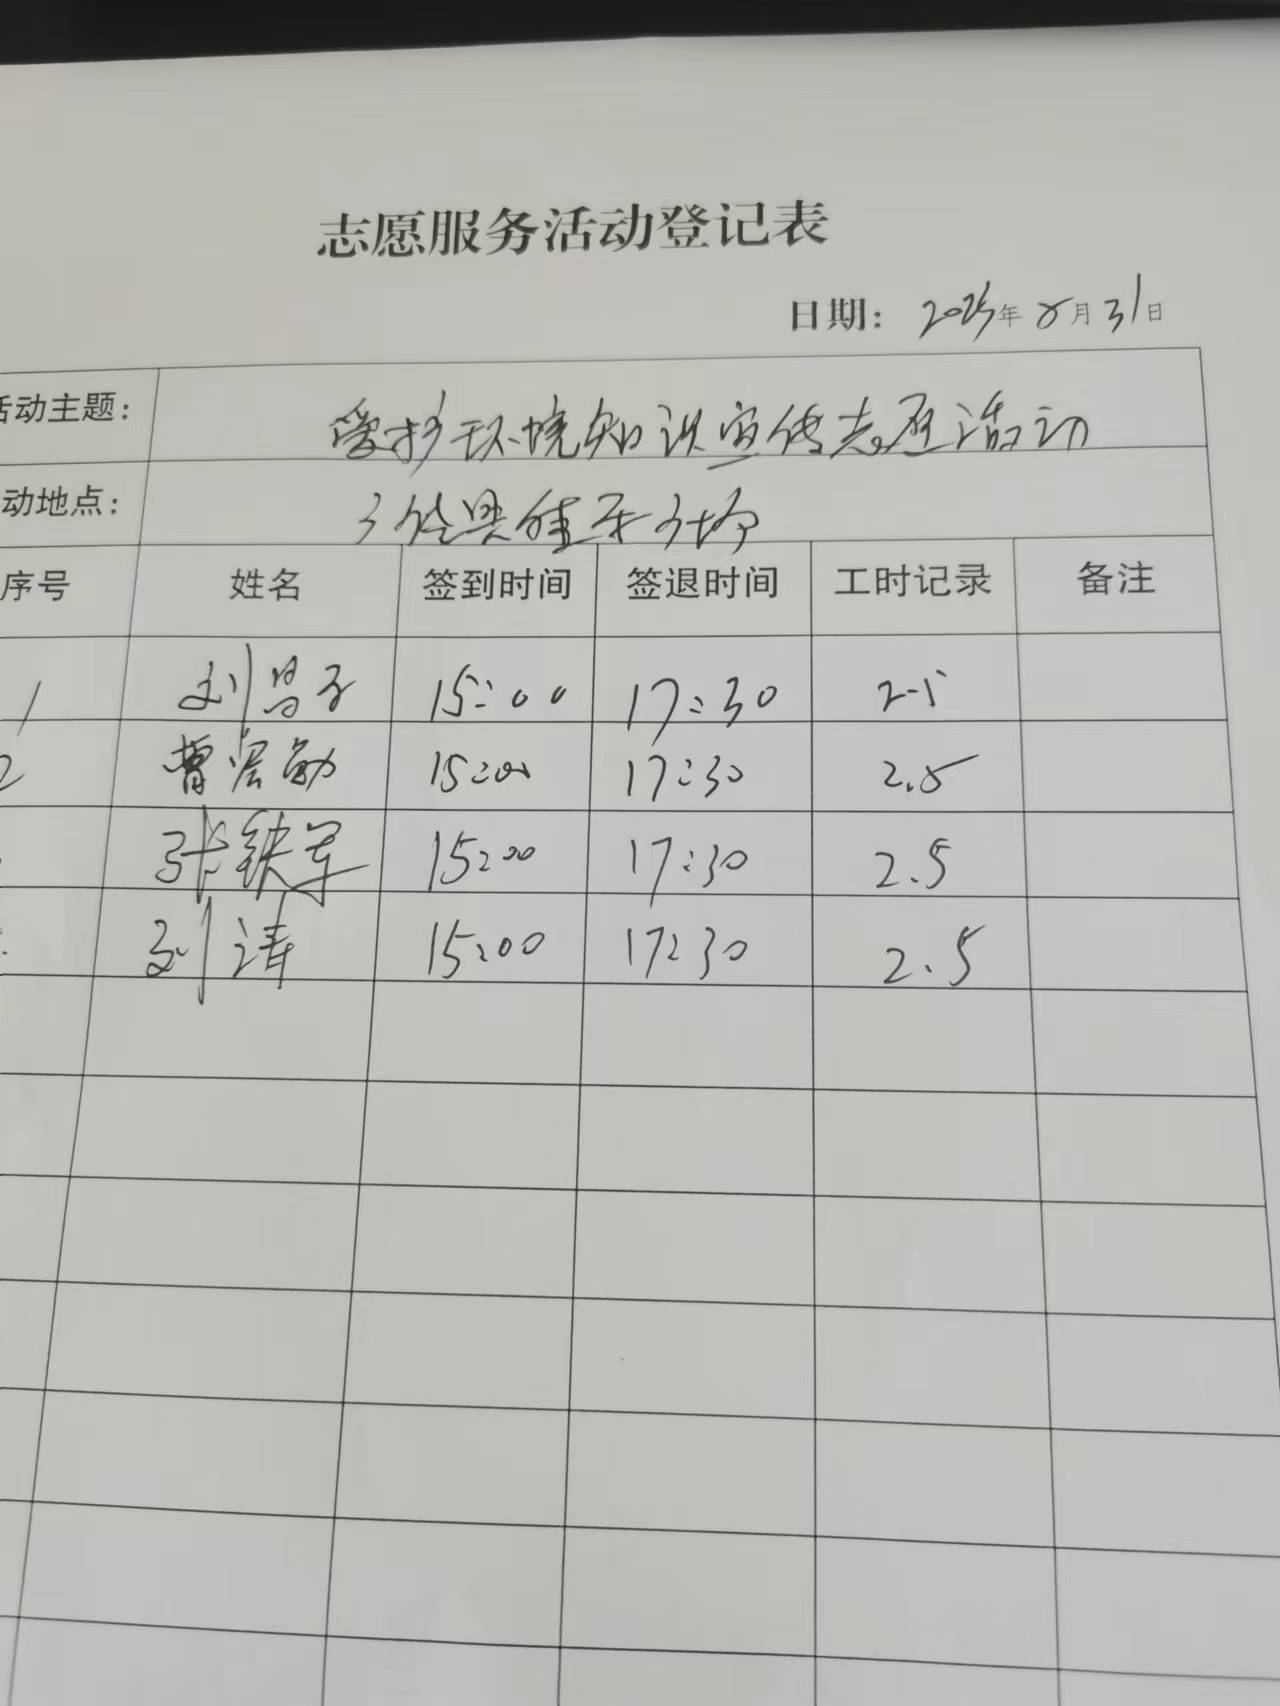 志愿服务活动登记表
日期: 2025年8月31日
活动主题: 爱护环境知识宣传志愿活动
动地点:
序号 姓名 签到时间 签退时间 工时记录 备注
1 刘昌子 15:00 17:30 2.5
2 曹宏敏 15:00 17:30 2.5
张铁军 15:00 17:30 2.5
刘涛 15:00 17:30 2.5